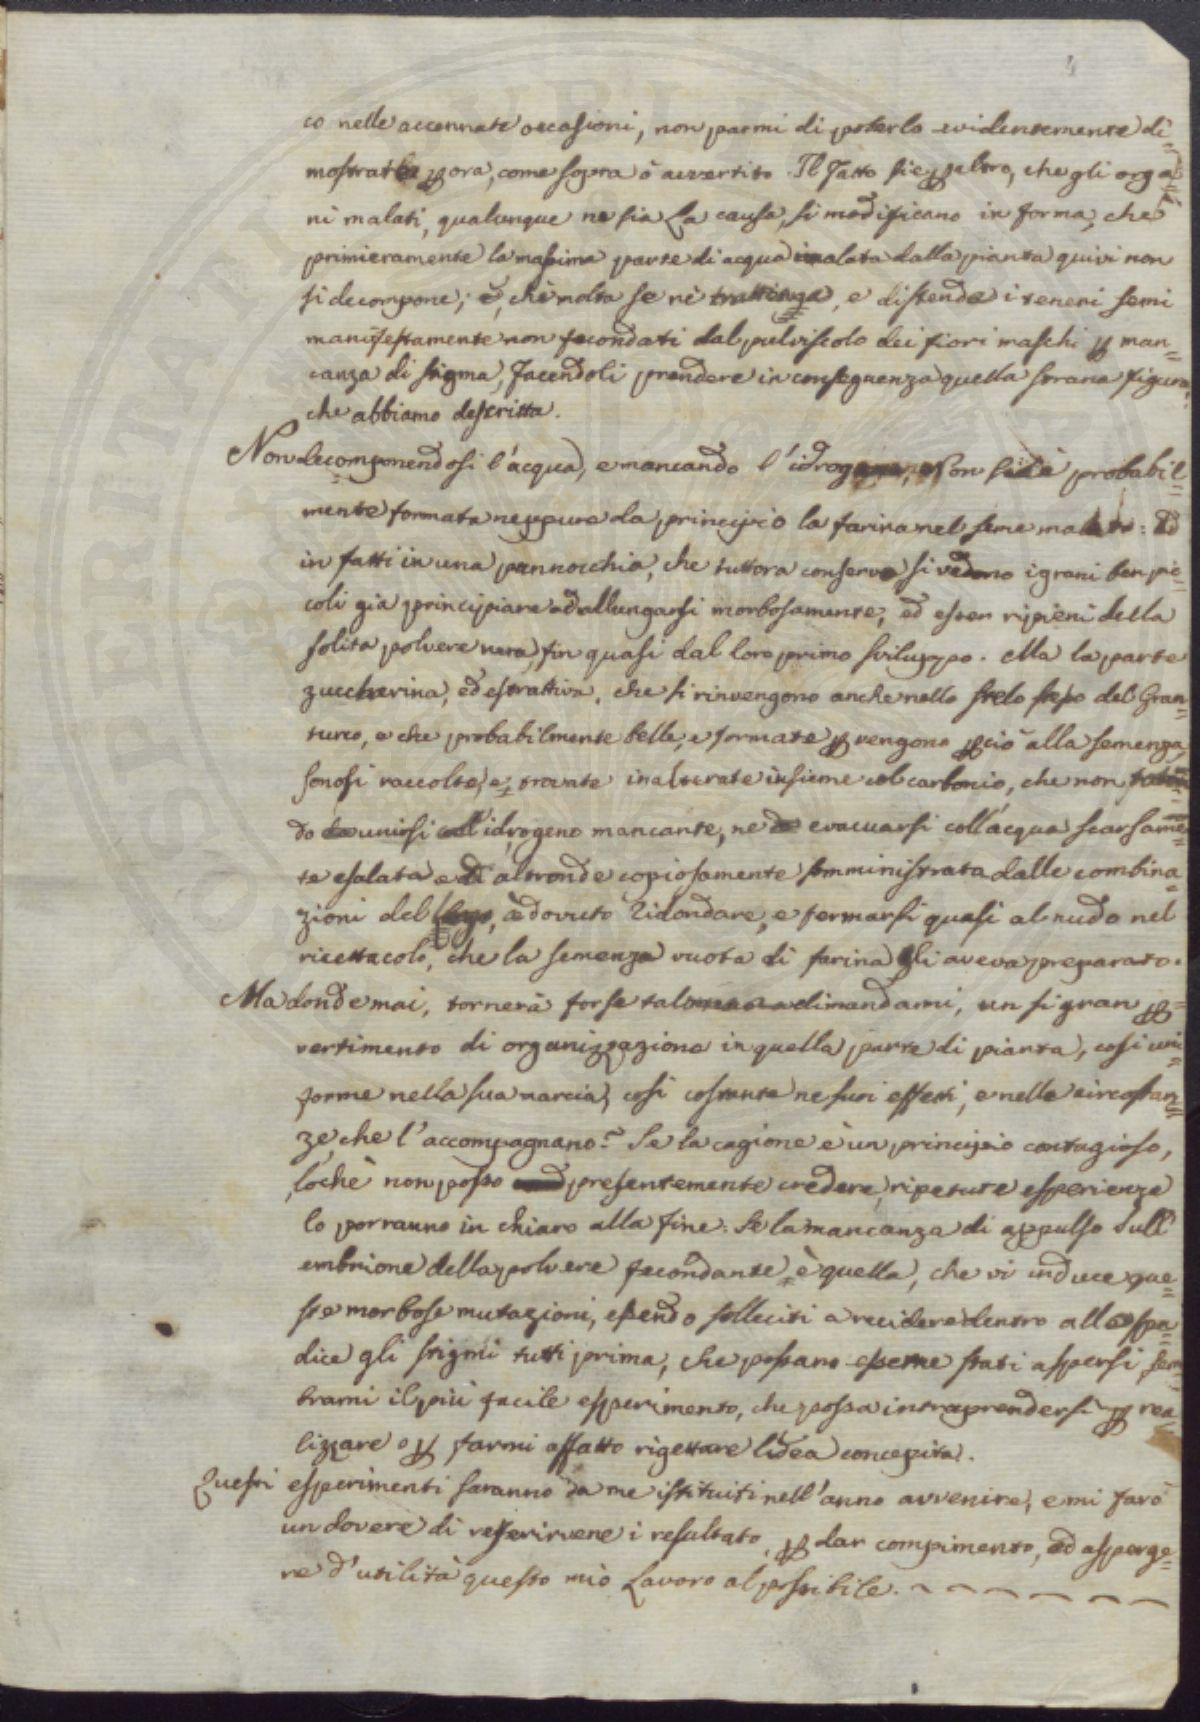 4
co nelle accennate occasioni, non parmi di poterlo evidentemente di=
mostrare ꝑ ora, come sopra ò avvertito. Il Fatto sie ꝑ altro, che gli orga=
ni malati, qualunque ne sia La causa, si modificano in forma, che
primieramente la massima parte di acqua inalata dalla pianta quivi non
si decompone; e, che molta se ne trattenga, e distenda i teneri semi
manifestamente non fecondati dal pulviscolo dei fiori maschi ꝑ man=
canza di stigma, facendoli prendere in conseguenza quella strana figura
che abbiamo descritta.
Non decomponendosi l'acqua, e mancando l'idrogeno, non si è probabil=
mente formata neppure da principio la farina nel seme malato: Ed
in fatti in una pannocchia, che tuttora conservo si vedono i grani ben pic=
coli già principiare ad allungarsi morbosamente, ed esser ripieni della
solita polvere nera, fin quasi dal loro primo sviluppo. Ma la parte
zuccherina, ed estrattiva, che si rinvengono anche nello stelo stesso del Gran=
turco, e che probabilmente belle, e formate ꝑvengono ꝑciò alla semenza
sonosi raccolte, e trovate inalterate insieme col carbonio, che non
do unirsi coll'idrogeno mancante, ne evacuarsi coll'acqua scarsamen=
te esalata e di altronde copiosamente somministrata dalle combina=
zioni del, à dovuto ridondare, e fermarsi quasi al nudo nel
ricettacolo, che la semenza vuota di farina gli aveva preparato.
Ma donde mai, tornerà forse taluno a dimandarmi, un sì gran ꝑ=
vertimento di organizzazione in quella parte di pianta, così uni=
forme nella sua marcia, così costante ne suoi effetti, e nelle circostan=
ze che l'accompagnano? Se la cagione è un principio contagioso,
lochè non posso presentemente credere, ripetute esperienze
lo porranno in chiaro alla fine. Se la mancanza di appulso sull'
embrione della polvere fecondante è quella, che vi induce que=
ste morbose mutazioni, essendo solleciti a recidere dentro allo spa=
dice gli stigmi tutti prima, che possano essere stati aspersi, sem=
brami il più facile esperimento, che possa intraprendersi ꝑ rea=
lizzare o ꝑ farmi affatto rigettare l'idea concepita.
Questi esperimenti saranno da me istituiti nell'anno avvenire, e mi farò
un dovere di referirvene i resultato, ꝑ dar compimento, ed asperge=
re d'utilità questo mio Lavoro al possibile.